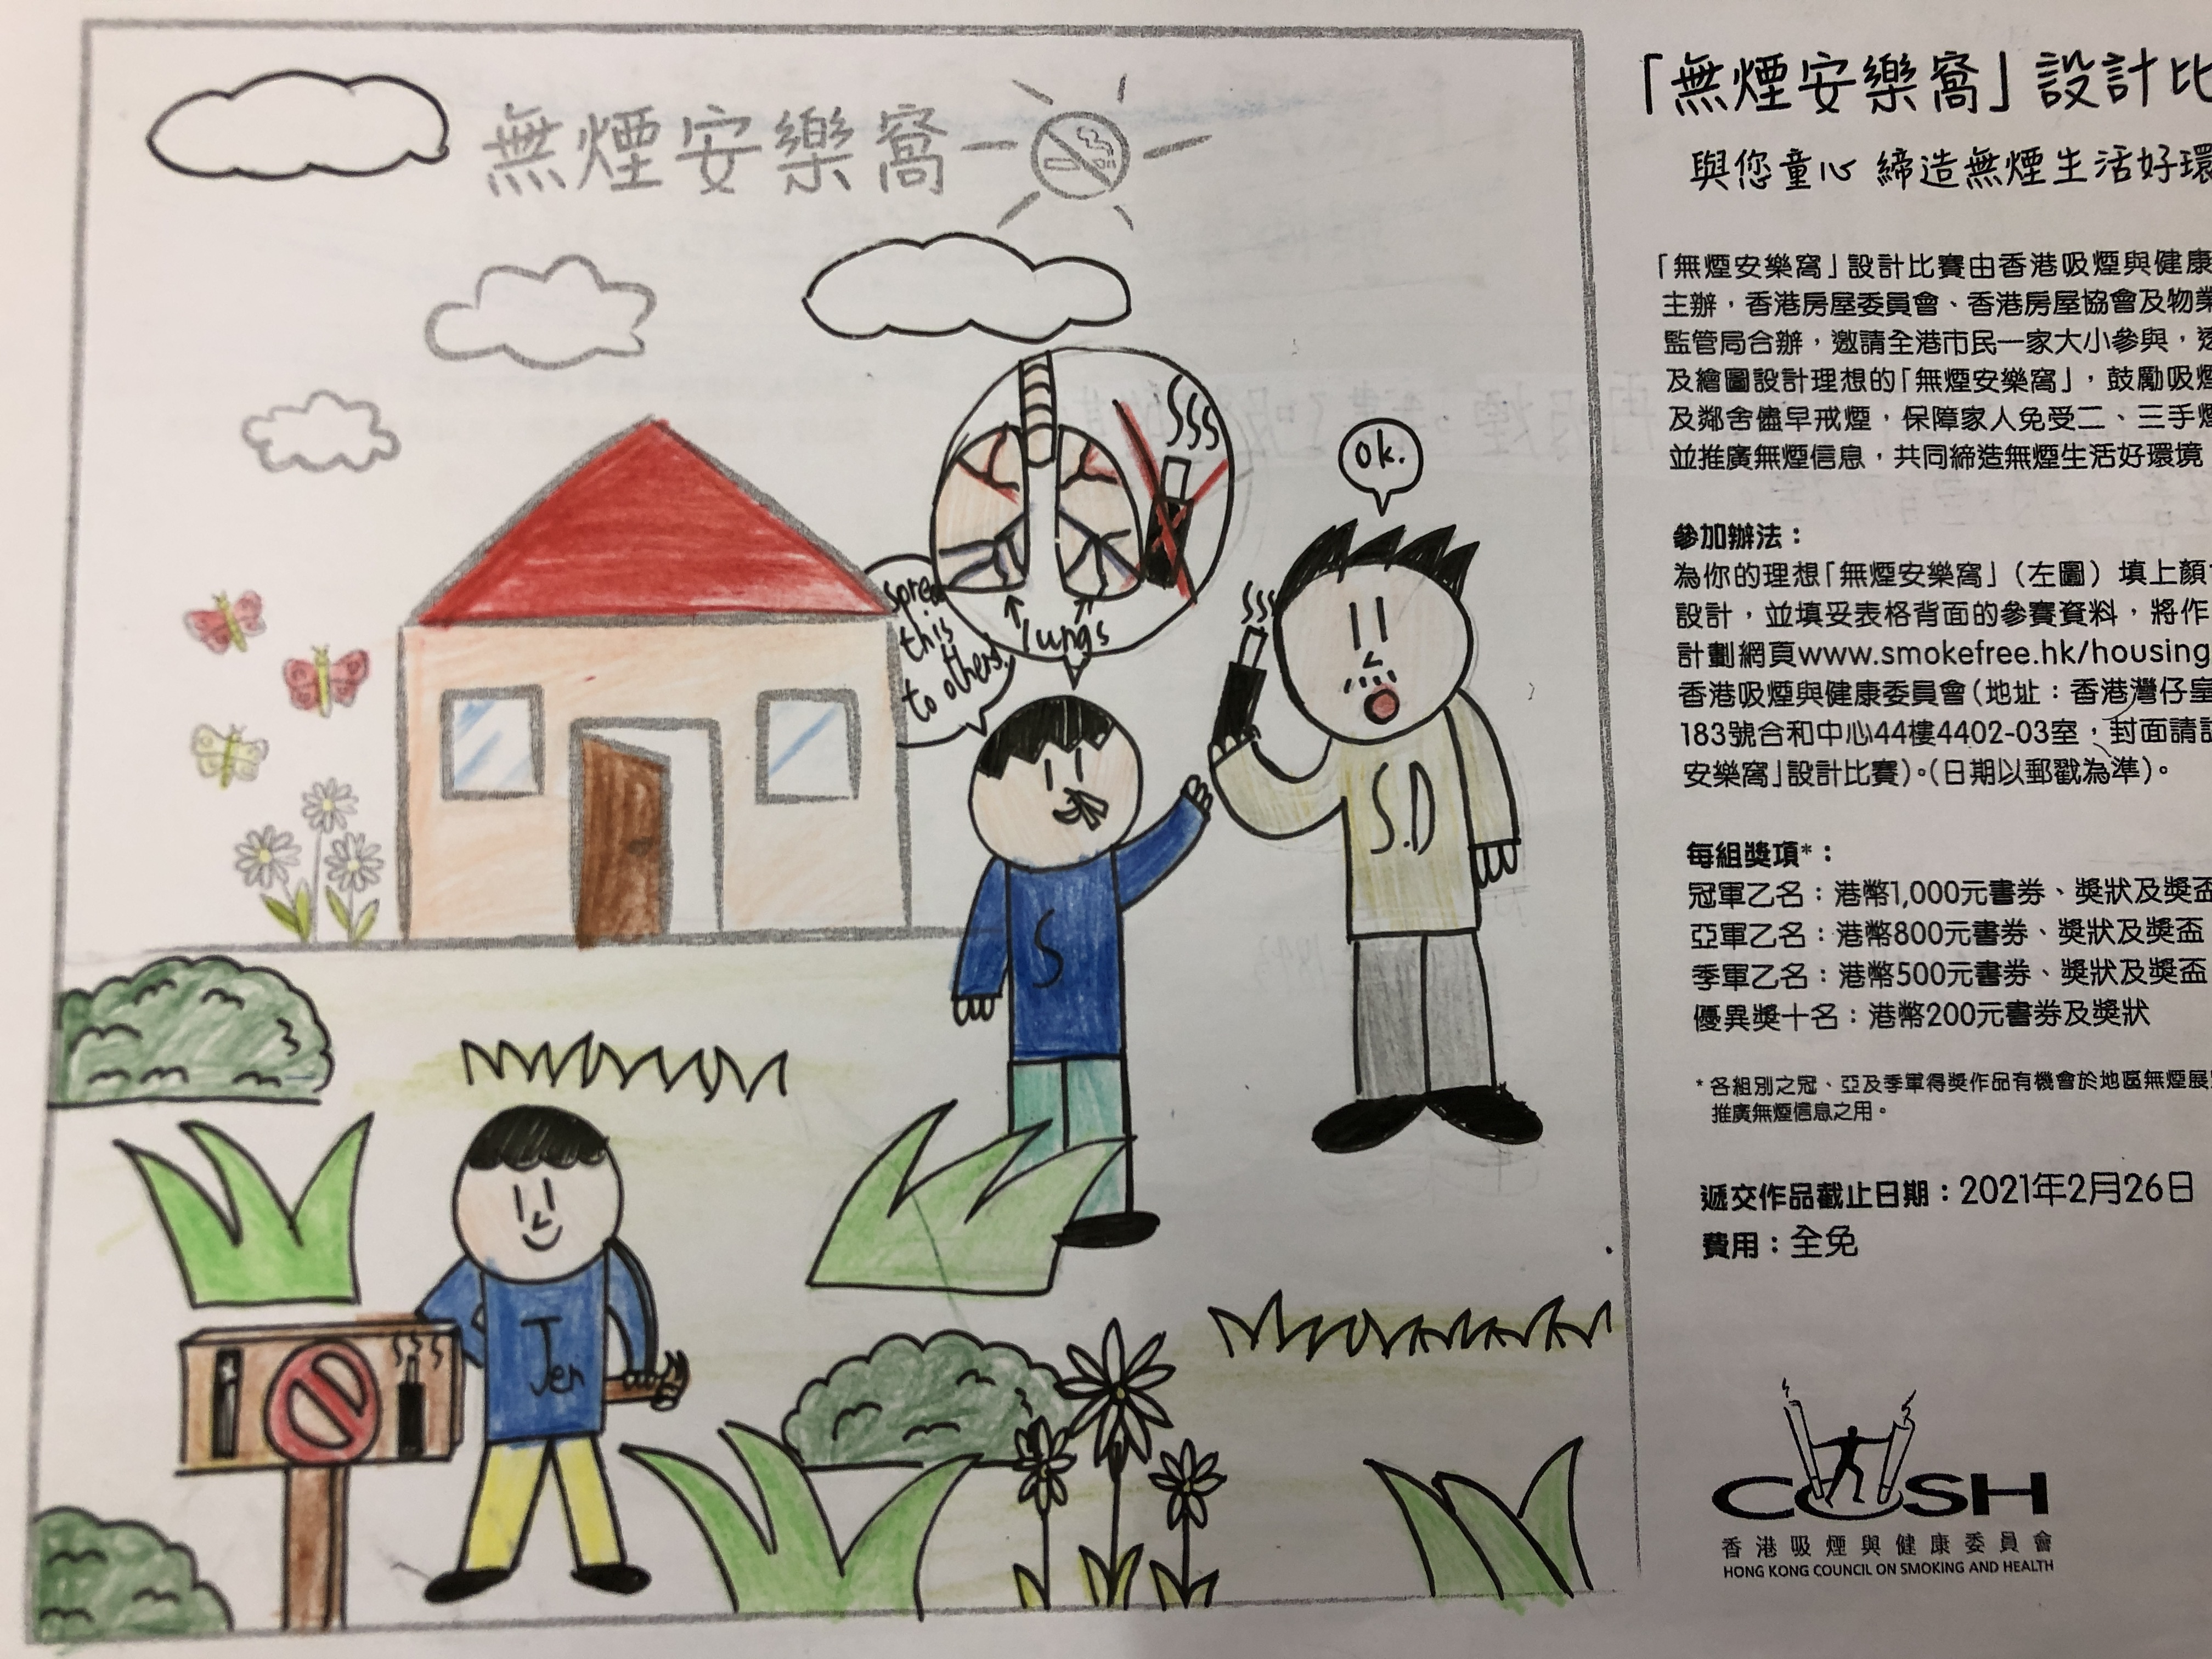 無煙安樂窩
ok.
lungs
this
to others.
S.D
S
Jen
「無煙安樂窩」設計比
與您童心 締造無煙生活好環
「無煙安樂窩」設計比賽由香港吸煙與健康
主辦，香港房屋委員會、香港房屋協會及物業
監管局合辦，邀請全港市民一家大小參與，透
及繪圖設計理想的「無煙安樂窩」，鼓勵吸煙
及鄰舍儘早戒煙，保障家人免受二、三手煙
並推廣無煙信息，共同締造無煙生活好環境
參加辦法：
為你的理想「無煙安樂窩」（左圖）填上顏
設計，並填妥表格背面的參賽資料，將作
計劃網頁www.smokefree.hk/housing
香港吸煙與健康委員會（地址：香港灣仔皇
183號合和中心44樓4402-03室，封面請註
安樂窩」設計比賽）。（日期以郵戳為準）。
每組獎項*：
冠軍乙名：港幣1,000元書券、獎狀及獎盃
亞軍乙名：港幣800元書券、獎狀及獎盃
季軍乙名：港幣500元書券、獎狀及獎盃
優異獎十名：港幣200元書券及獎狀
*各組別之冠、亞及季軍得獎作品有機會於地區無煙展
推廣無煙信息之用。
遞交作品截止日期：2021年2月26日
費用：全免
COSH
香港吸煙與健康委員會
HONG KONG COUNCIL ON SMOKING AND HEALTH